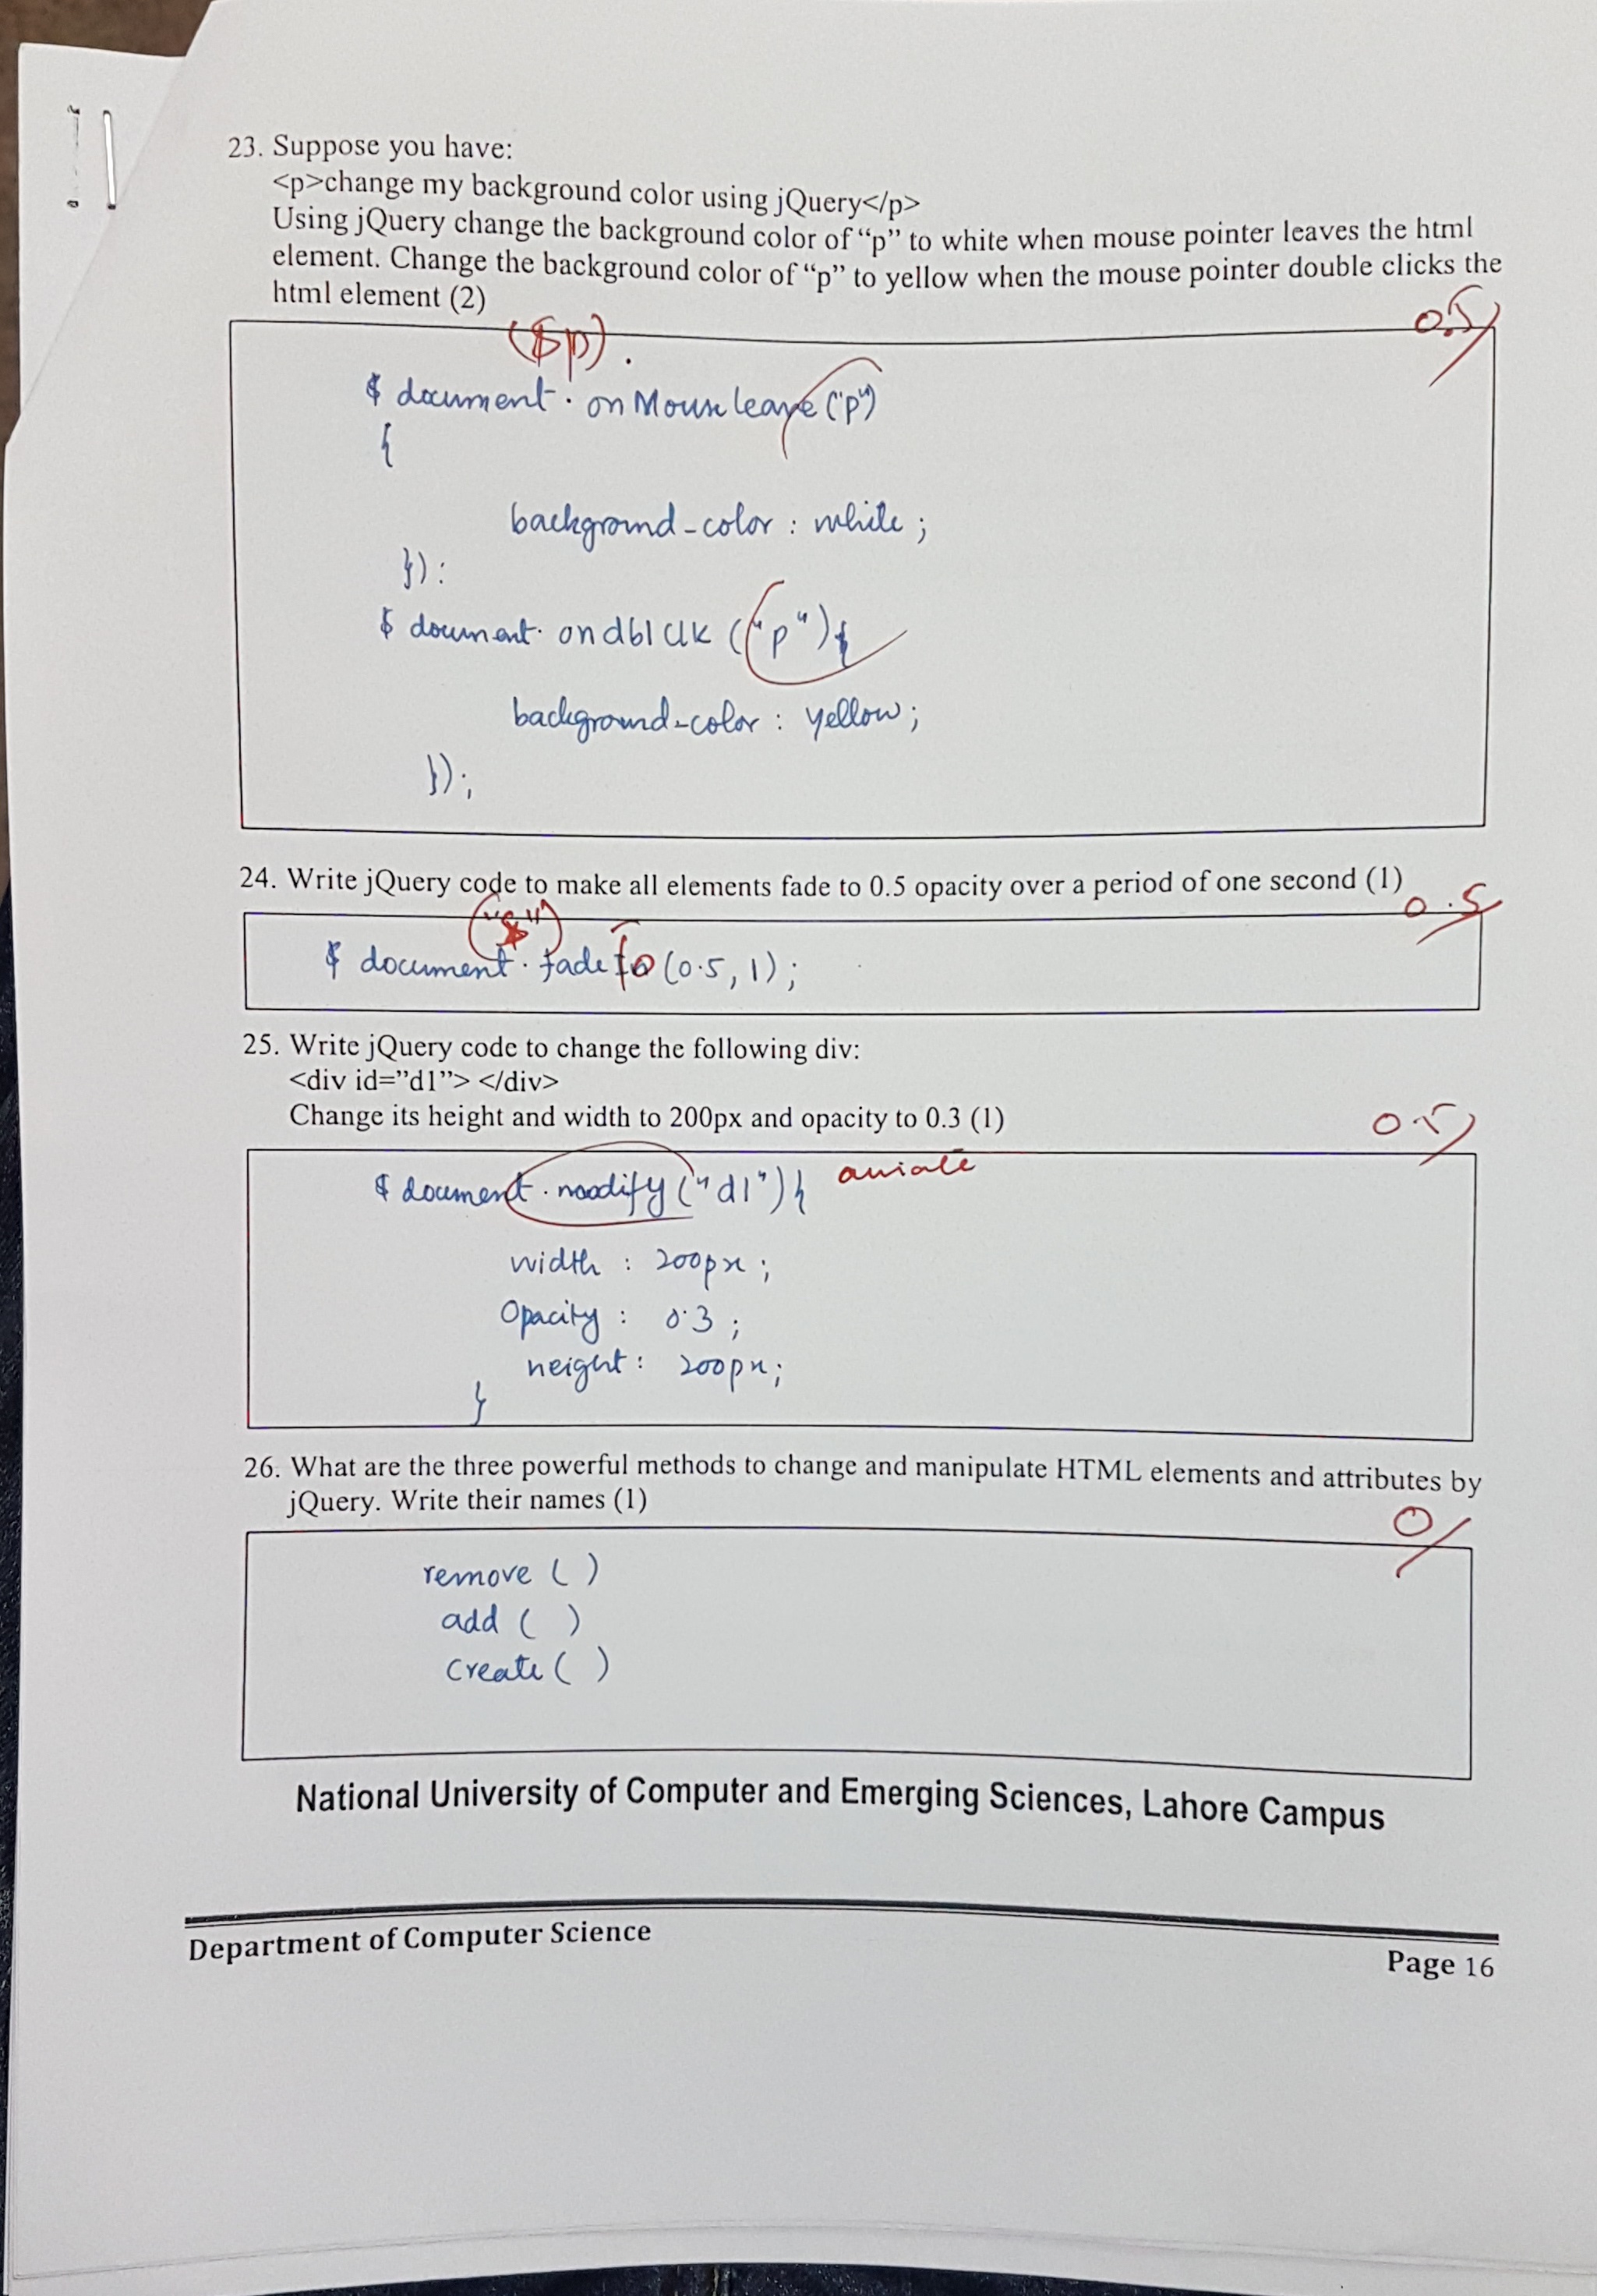 23. Suppose you have:
<p>change my background color using jQuery</p>
Using jQuery change the background color of “p” to white when mouse pointer leaves the html
element. Change the background color of “p” to yellow when the mouse pointer double clicks the
html element (2)
0.5
($p).
$ document. onMouseleave ("p")
{
background-color : white ;
}) :
$ document. ondblclk (("p"){
background-color : yellow ;
});
24. Write jQuery code to make all elements fade to 0.5 opacity over a period of one second (1)
0.5
$ document. fadeTo (0.5, 1) ;
25. Write jQuery code to change the following div:
<div id=”d1”> </div>
Change its height and width to 200px and opacity to 0.3 (1)
0.5
$ document. modify ("d1") { amiate
width : 200px ;
Opacity : 0.3 ;
height : 200px ;
}
26. What are the three powerful methods to change and manipulate HTML elements and attributes by
jQuery. Write their names (1)
0
remove ( )
add ( )
create ( )
National University of Computer and Emerging Sciences, Lahore Campus
Department of Computer Science
Page 16